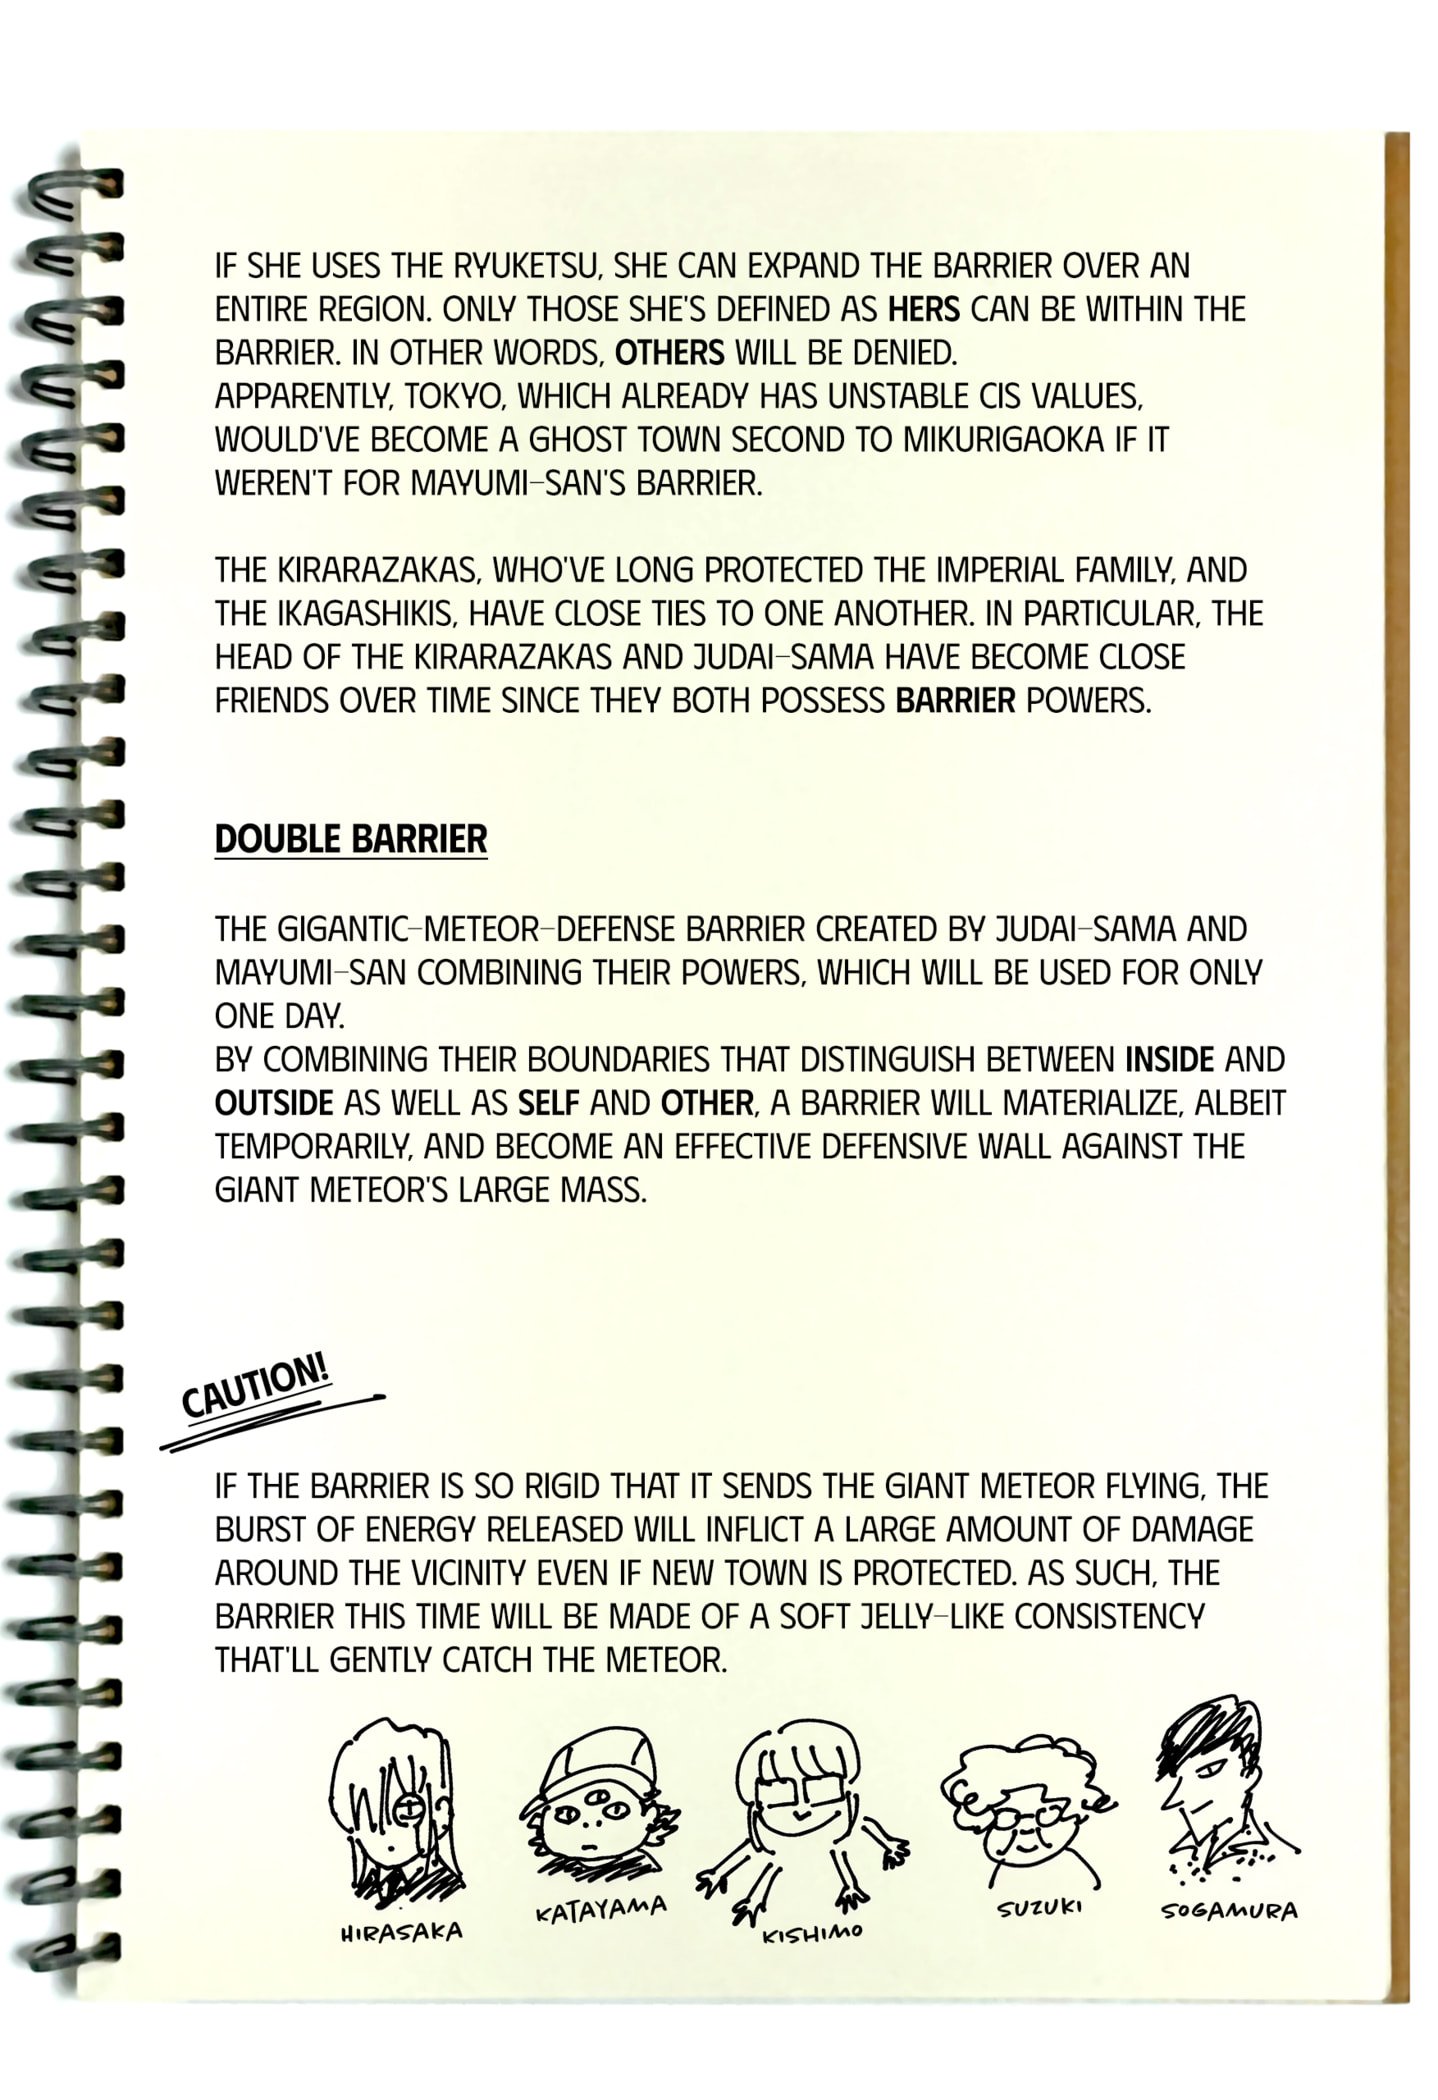 IF SHE USES THE RYUKETSU, SHE CAN EXPAND THE BARRIER OVER AN
ENTIRE REGION. ONLY THOSE SHE'S DEFINED AS HERS CAN BE WITHIN THE
BARRIER. IN OTHER WORDS, OTHERS WILL BE DENIED.
APPARENTLY, TOKYO, WHICH ALREADY HAS UNSTABLE CIS VALUES,
WOULD'VE BECOME A GHOST TOWN SECOND TO MIKURIGAOKA IF IT
WEREN'T FOR MAYUMI-SAN'S BARRIER.
THE KIRARAZAKAS, WHO'VE LONG PROTECTED THE IMPERIAL FAMILY, AND
THE IKAGASHIKIS, HAVE CLOSE TIES TO ONE ANOTHER. IN PARTICULAR, THE
HEAD OF THE KIRARAZAKAS AND JUDAI-SAMA HAVE BECOME CLOSE
FRIENDS OVER TIME SINCE THEY BOTH POSSESS BARRIER POWERS.
DOUBLE BARRIER
THE GIGANTIC-METEOR-DEFENSE BARRIER CREATED BY JUDAI-SAMA AND
MAYUMI-SAN COMBINING THEIR POWERS, WHICH WILL BE USED FOR ONLY
ONE DAY.
BY COMBINING THEIR BOUNDARIES THAT DISTINGUISH BETWEEN INSIDE AND
OUTSIDE AS WELL AS SELF AND OTHER, A BARRIER WILL MATERIALIZE, ALBEIT
TEMPORARILY, AND BECOME AN EFFECTIVE DEFENSIVE WALL AGAINST THE
GIANT METEOR'S LARGE MASS.
CAUTION!
IF THE BARRIER IS SO RIGID THAT IT SENDS THE GIANT METEOR FLYING, THE
BURST OF ENERGY RELEASED WILL INFLICT A LARGE AMOUNT OF DAMAGE
AROUND THE VICINITY EVEN IF NEW TOWN IS PROTECTED. AS SUCH, THE
BARRIER THIS TIME WILL BE MADE OF A SOFT JELLY-LIKE CONSISTENCY
THAT'LL GENTLY CATCH THE METEOR.
HIRASAKA
KATAYAMA
KISHIMO
SUZUKI
SOGAMURA